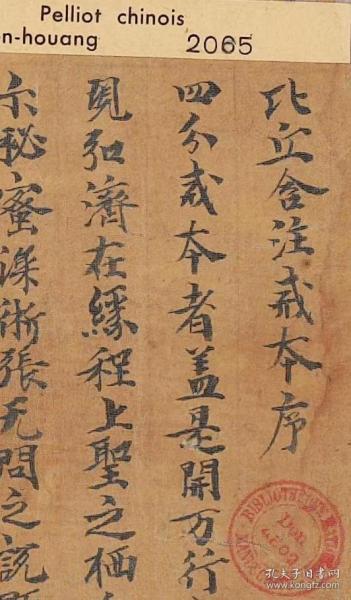 Pelliot chinois
en-houang 2065
比丘含注戒本序
四分戒本者盖是開万行
現弘濟在緣程上聖之栖
尓秘蜜深術張无問之説
BIBLIOTHÈQUE
孔夫子旧书网